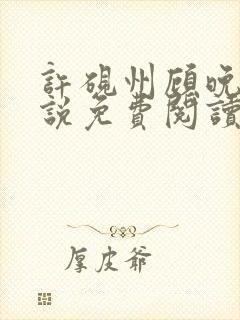 許硯州顧晚
說免費閱讀
厚皮爺